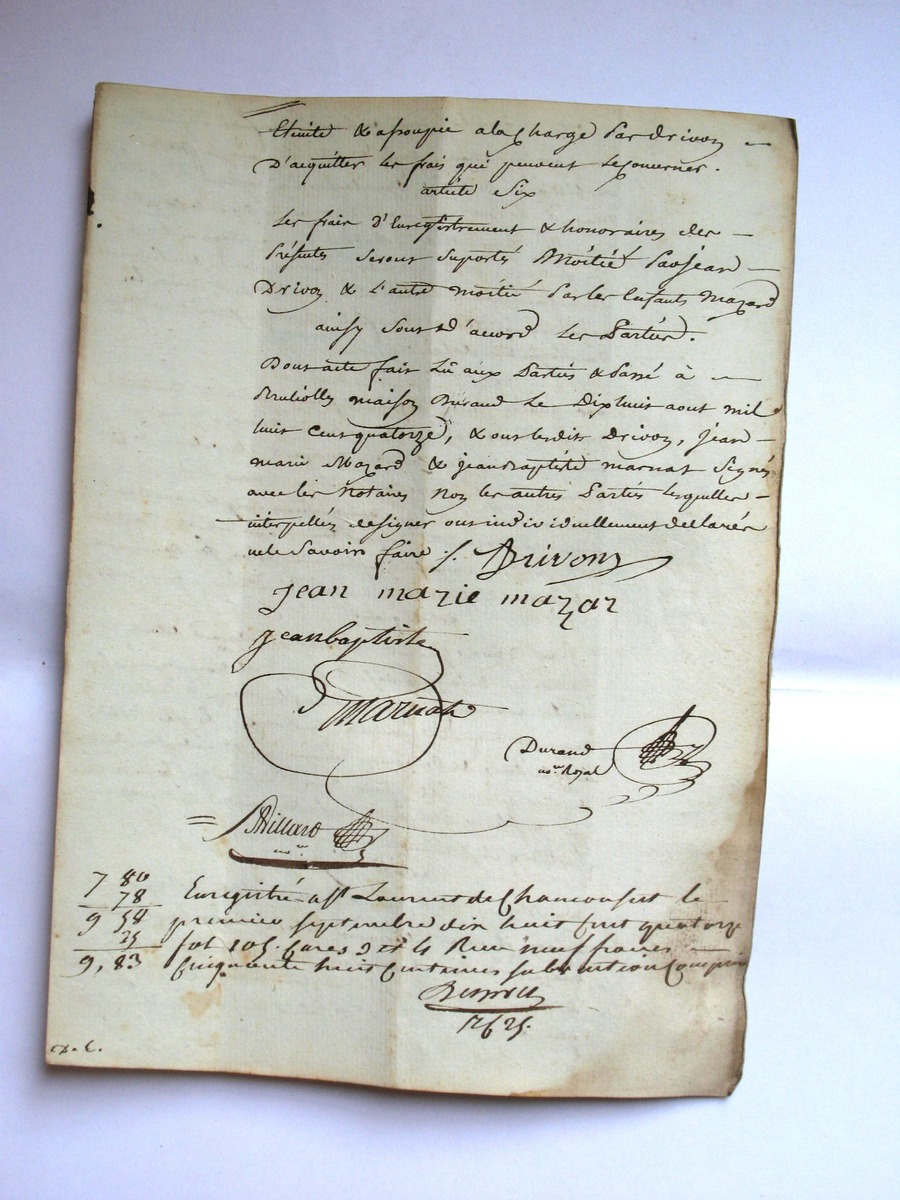 Eteinte & assoupie a la Charge Par drivon
D'acquitter les frais qui peuvent
article Six
Les frais D'Enregistrement & honoraires des
Présentes Seront Suportés Moitié Par Jean
Drivon & L'autre moitié Par les Enfants Mazard
ainsy Sont d'accord les Parties.
Dont acte fait Lû aux Parties & Passé à
maison Durand Le Dixhuit aout mil
huit Cent quatorze, & ont lesdits Drivon, Jean
marie Mazard & jean Baptiste marnat Signés
avec les Notaires Non les autres Parties lesquelles
interpellés de signer ont individuellement declarés
ne le Savoir faire ./. Drivon
jean marie mazar
jean baptiste
marnat
Durand
nore Royal
Billard
nre
7 80
78
9 58
25
9, 83
Enregistré a St Laurent de Chamousset le
premier septembre dix huit cent quatorze
fol 105. Cases 3 et 4 Recu neuf francs
Cinquante huit Centimes subvention Comprise
2625.